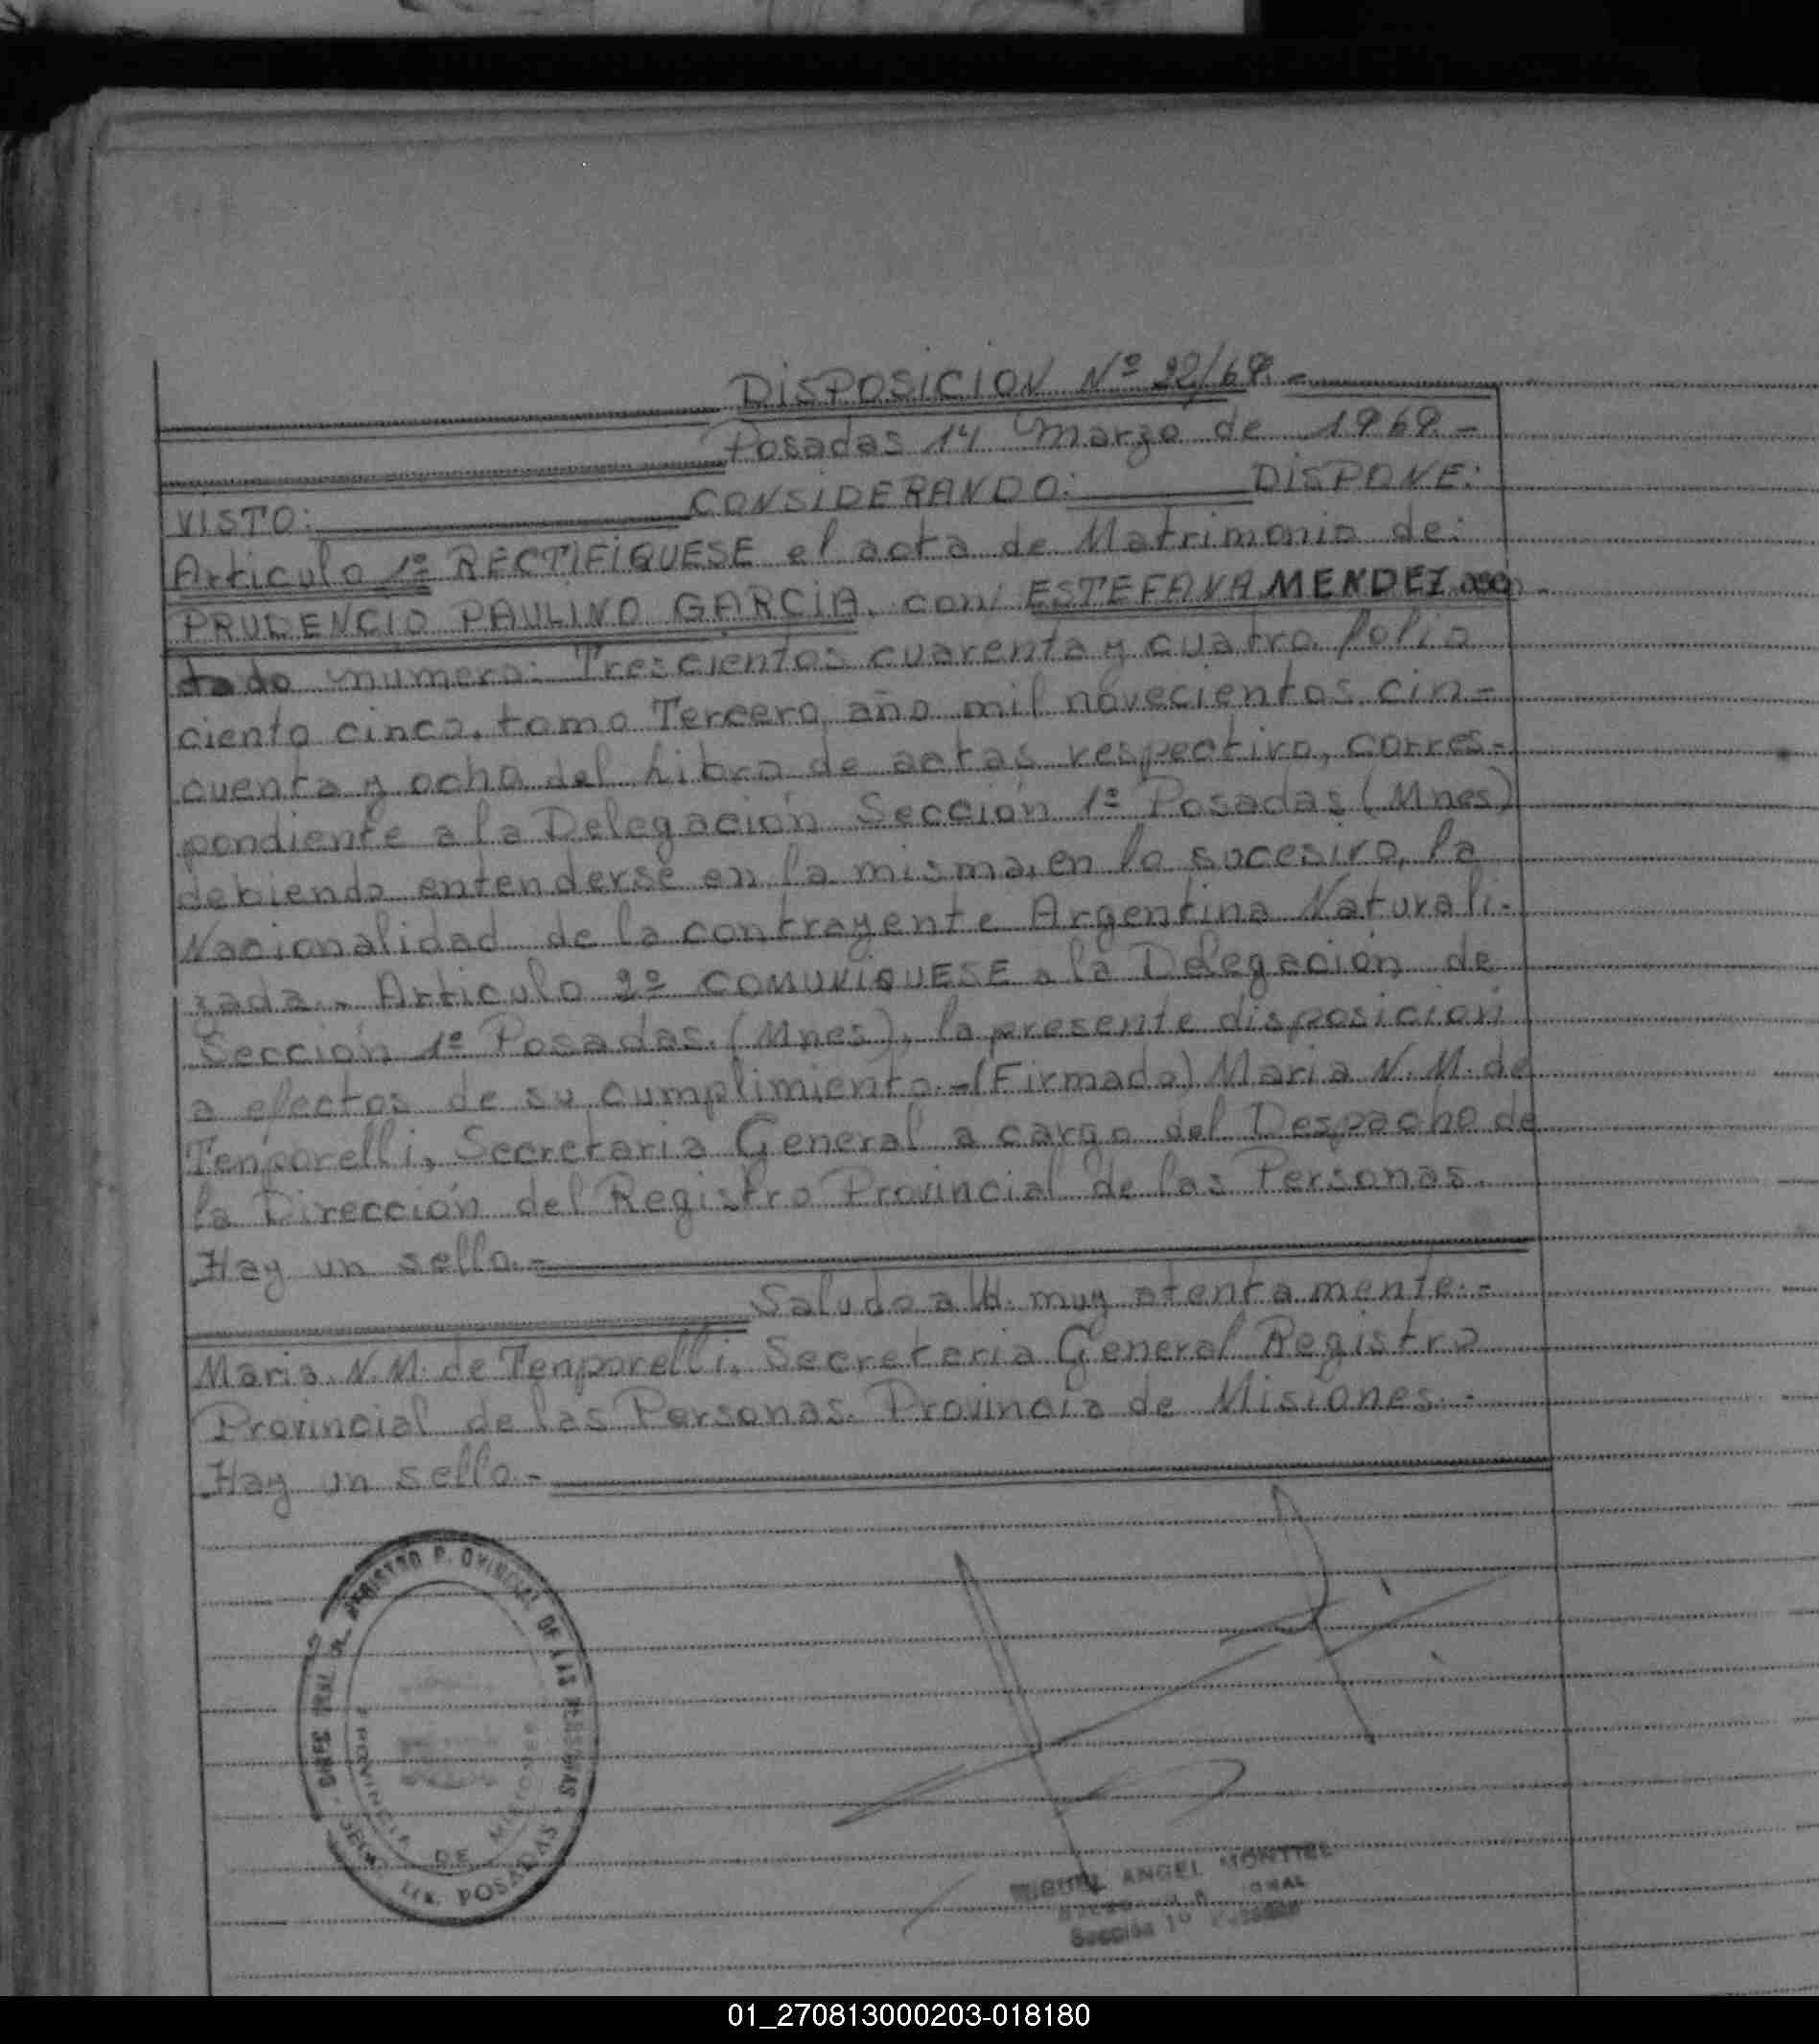 DISPOSICION Nº 22/69.-
Posadas 14 Marzo de 1969.-
VISTO: CONSIDERANDO: DISPONE:
Articulo 1º RECTIFIQUESE el acta de Matrimonio de:
PRUDENCIO PAULINO GARCIA, con ESTEFANA MENDEZ
tado número: Trescientos cuarenta y cuatro folio
ciento cinco, tomo Tercero, año mil novecientos cin-
cuenta y ocho del Libro de actas respectivo, corres-
pondiente a la Delegación Sección 1º Posadas (Mnes)
debiendo entenderse en la misma, en lo sucesivo, la
Nacionalidad de la contrayente Argentina Naturali-
zada.- Articulo 2º COMUNIQUESE a la Delegación de
Sección 1º Posadas (Mnes), la presente disposición
a efectos de su cumplimiento.-(Firmado) Maria N.M. de
Tenporelli, Secretaria General a cargo del Despacho de
la Dirección del Registro Provincial de las Personas.
Hay un sello.-
Saludo a Ud. muy atentamente.-
Maria N.M. de Tenporelli. Secretaria General Registro
Provincial de las Personas. Provincia de Misiones.-
Hay un sello.-
REGISTRO P. OVINCIAL DE LAS PERSONAS
PROVINCIA DE MISIONES
POSADAS
MIGUEL ANGEL MONTIEL
Sección 1º
01_270813000203-018180